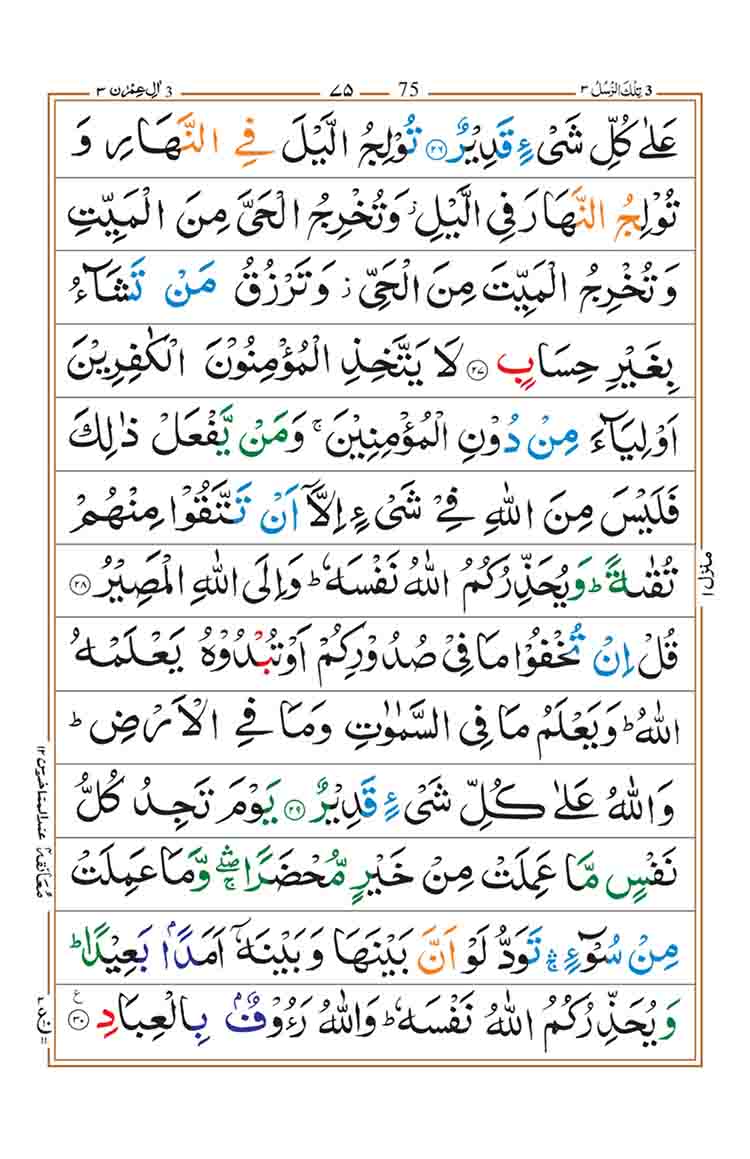 3 تِلْكَ الرُّسُلُ ٣
75 ٧٥
3 اٰلِ عِمْرٰن ٣
عَلٰى كُلِّ شَیْءٍ قَدِیْرٌ ﴿۲۶﴾ تُوْلِجُ الَّیْلَ فِی النَّهَارِ وَ
تُوْلِجُ النَّهَارَ فِی الَّیْلِ ؗ وَتُخْرِجُ الْحَیَّ مِنَ الْمَیِّتِ
وَتُخْرِجُ الْمَیِّتَ مِنَ الْحَیِّ ؗ وَتَرْزُقُ مَنْ تَشَآءُ
بِغَیْرِ حِسَابٍ ﴿۲۷﴾ لَا یَتَّخِذِ الْمُؤْمِنُوْنَ الْكٰفِرِیْنَ
اَوْلِیَآءَ مِنْ دُوْنِ الْمُؤْمِنِیْنَ ۚ وَمَنْ یَّفْعَلْ ذٰلِكَ
فَلَیْسَ مِنَ اللّٰهِ فِیْ شَیْءٍ اِلَّاۤ اَنْ تَتَّقُوْا مِنْهُمْ
تُقٰىةً ؕ وَیُحَذِّرُكُمُ اللّٰهُ نَفْسَهٗ ؕ وَاِلَی اللّٰهِ الْمَصِیْرُ ﴿۲۸﴾
قُلْ اِنْ تُخْفُوْا مَا فِیْ صُدُوْرِكُمْ اَوْ تُبْدُوْهُ یَعْلَمْهُ
اللّٰهُ ؕ وَیَعْلَمُ مَا فِی السَّمٰوٰتِ وَمَا فِی الْاَرْضِ ؕ
وَاللّٰهُ عَلٰى كُلِّ شَیْءٍ قَدِیْرٌ ﴿۲۹﴾ یَوْمَ تَجِدُ كُلُّ
نَفْسٍ مَّا عَمِلَتْ مِنْ خَیْرٍ مُّحْضَرًا ۛۖۚ وَّمَا عَمِلَتْ
مِنْ سُوْٓءٍ ۛۚ تَوَدُّ لَوْ اَنَّ بَیْنَهَا وَبَیْنَهٗۤ اَمَدًۢا بَعِیْدًا ؕ
وَیُحَذِّرُكُمُ اللّٰهُ نَفْسَهٗ ؕ وَاللّٰهُ رَءُوْفٌۢ بِالْعِبَادِ ﴿۳۰﴾ ع
منزل ١